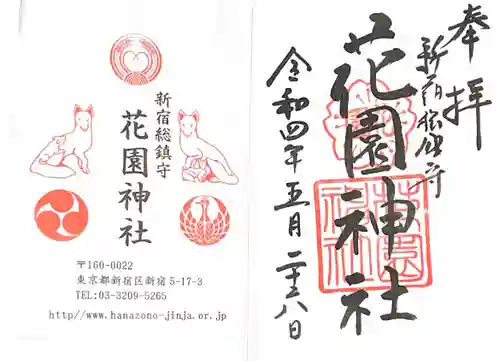 新宿総鎮守
花園神社
〒160-0022
東京都新宿区新宿 5-17-3
TEL:03-3209-5265
http//www.hanazono-jinja.or.jp
奉拝
新宿総鎮守
花園神社
令和四年五月二十八日